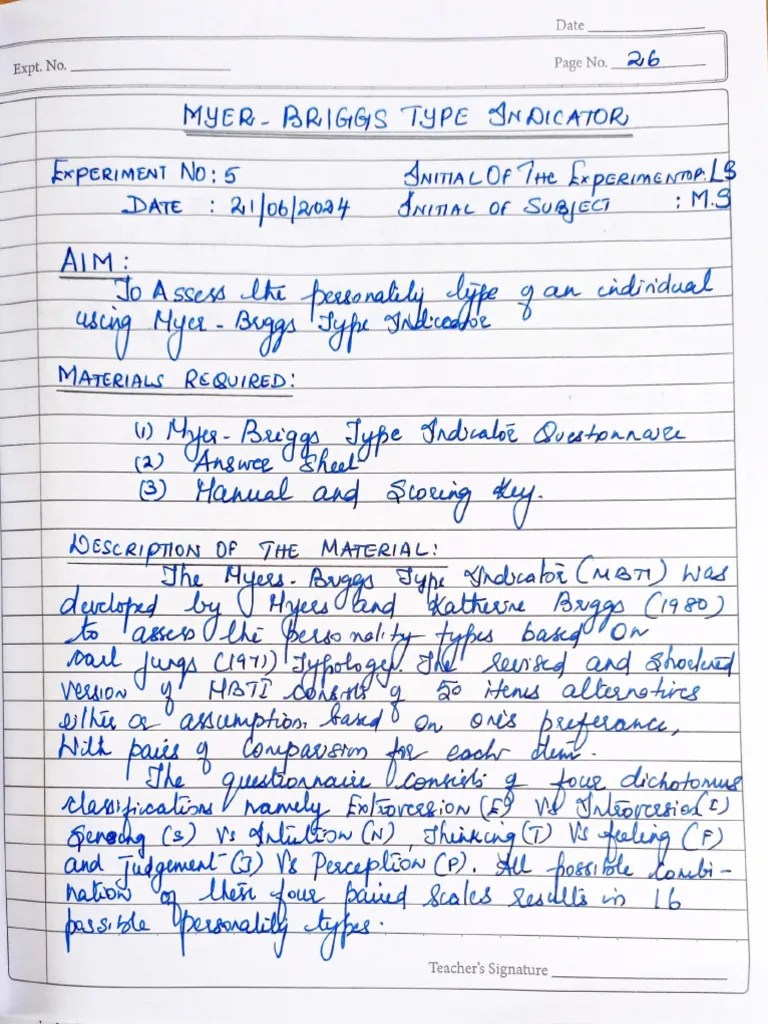 Date
Expt. No.
Page No. 26
MYER-BRIGGS TYPE INDICATOR
EXPERIMENT NO: 5 INITIAL OF THE EXPERIMENTOR: LS
DATE : 21/06/2024 INITIAL OF SUBJECT : M.S
AIM:
To Assess the personality type of an individual
using Myer-Briggs Type Indicator
MATERIALS REQUIRED:
(1) Myer-Briggs Type Indicator Questionnaire
(2) Answer Sheet
(3) Manual and Scoring Key.
DESCRIPTION OF THE MATERIAL:
The Myers-Briggs Type Indicator (MBTI) was
developed by Myers and Katherine Briggs (1980)
to assess the personality types based on
Carl Jungs (1971) Typology. The revised and shortened
version of MBTI consists of 50 items alternatives
either or assumption based on one's preferance,
With pairs of comparison for each item.
The questionnaire consists of four dichotomus
classifications namely Extroversion (E) Vs Introversion (I)
Sensing (S) Vs Intution (N), Thinking (T) Vs feeling (F)
and Judgement (J) Vs Perception (P). All possible combi-
nation of these four paired scales results in 16
possible personality types.
Teacher's Signature